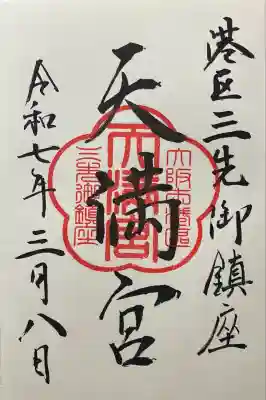 港区三先御鎮座
天満宮
令和七年三月八日
天満宮
大阪市港區
三先御鎮座